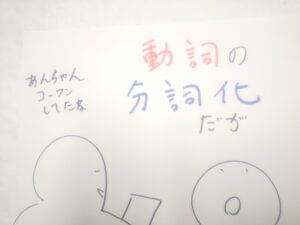 動詞の
分詞化
だが
あんちゃん
コーフン
してたな